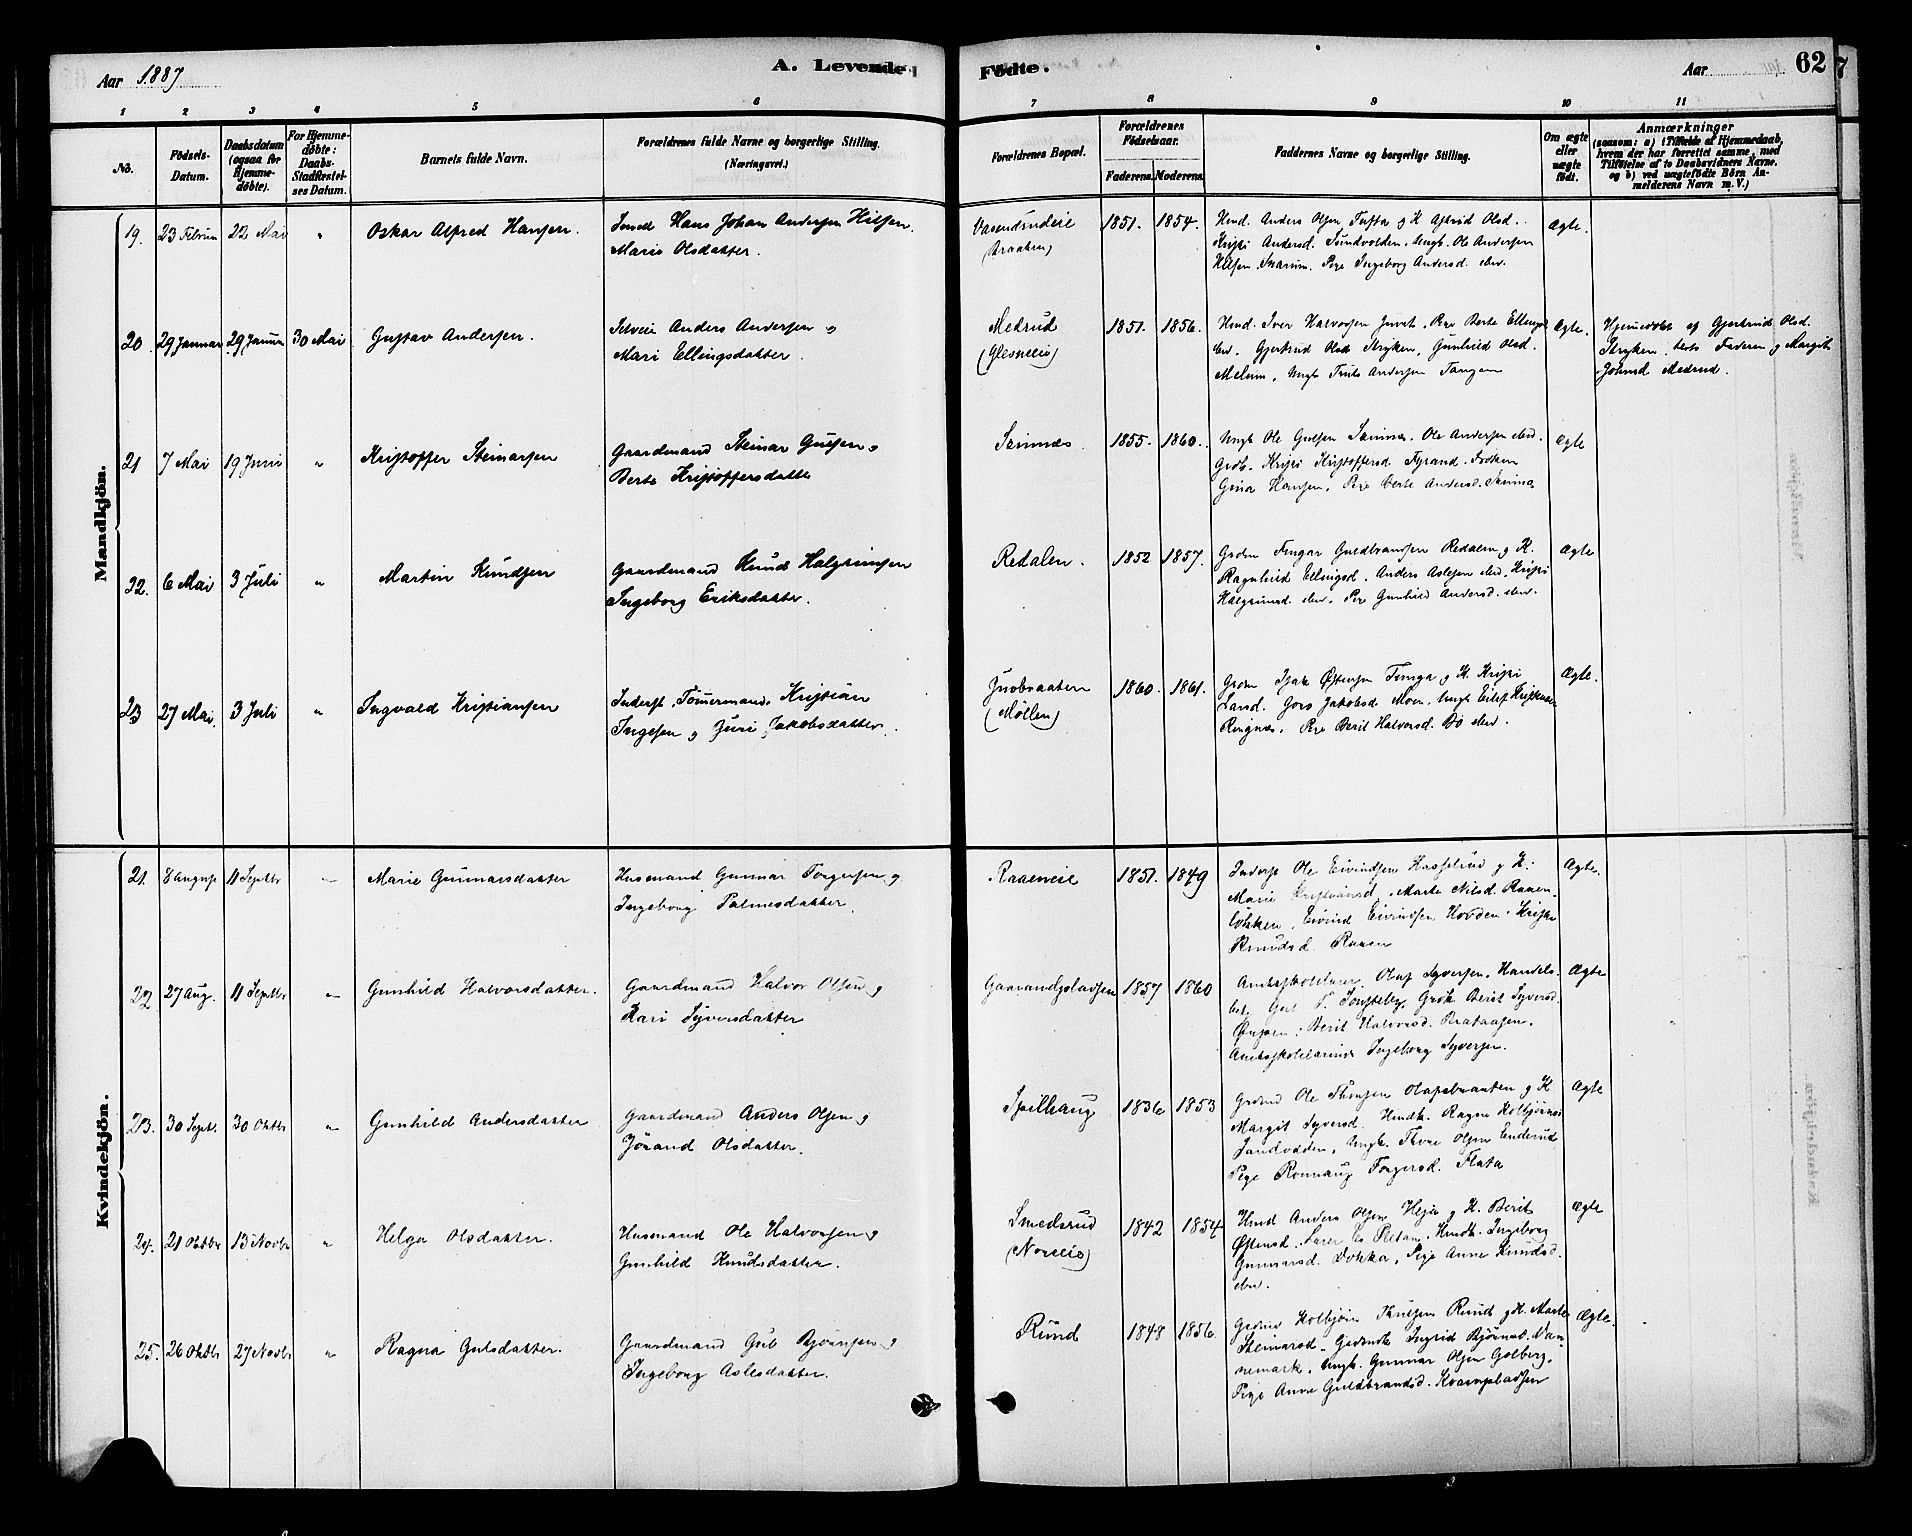 Aar 1887
A. Levende
Födte.
Aar
62
1 2 3 4 5 6 7 8 9 10 11
No.
Födsels-
Datum.
Daabsdatum
(ogsaa for
Hjemme-
döbte).
For Hjemme-
döbte:
Daabs-
Stadfæstel-
ses Datum.
Barnets fulde Navn.
Forældrenes fulde Navne og borgerlige Stilling.
(Næringsvei.)
Forældrenes Bopæl.
Forældrenes
Födselsaar.
Faderens. Moderens.
Faddernes Navne og borgerlige Stilling.
Om ægte
eller
uægte
födt.
Anmærkninger
(saasom: a) Tilfælde af Hjemmedaab,
hvem der har forrettet samme, med
Tilföielse af to Daabsvidners Navne.
og b) ved uægtefödte Börn An-
melderens Navn m. V.)
Mandkjön.
19. 23 Februar 22 Mai " Oskar Alfred Hansen. Hans Johan Andersen Hilsen. 1851. 1854. Hmd. Anders Olsen Tufta og K. Astrid Olsd. Ægte.
Marie Olsdatter. (Braaten) Kristi Andersd. Sundvolden. Ungk. Ole Andersen
Hilsen. Skarum. Pige Ingeborg Andersd. ebd.
20. 29 Januar 29 Januar 30 Mai Gustav Andersen. Selveier Anders Andersen og Medrud 1851. 1856. Hmd. Iver Halvorsen Juvet. Pige Berte Ellingsd. Ægte. Hjemmedøbt af Gjertrud Olsd.
Mari Ellingsdatter. (Glesneeie) ebd. Gjertrud Olsd Stryken, Gunhild Olsd. Stryken. Faderen og Margit
Melum, Ungk Truls Andersen Tangen Johnsd Medrud.
21 7 Mai 19 Juni " Kristoffer Steinarsen Gaardmand Steinar Gulsen og Skinnes 1855. 1860. Ungk Ole Gulsen Skinnes. Ole Andersen ebd. Ægte
Berte Kristoffersdatter Grdb. Kristi Kristoffersd.
Hansen, Pige Berte Andersd. Skinnes
22. 6 Mai 3 Juli " Martin Knudsen Gaardmand Knud Halgrimsen Redalen. 1852 1857. Grdm Guldbrandsen Redalen og K. Ægte
Ingeborg Eriksdatter. Ragnhild Ellingsd. Anders Aslesen ebd. Kristi
Halgrimsd. ebd. Pige Gunhild Andersd. ebd.
23 27 Mai 3 Juli " Ingvald Kristiansen Inderst. Tømermand. Kristian 1860. 1861. Grdm Isak Østensen og K. Kristi Ægte.
Ingesen og Juri Jakobsdatter. (Møllen) Larsd. Goro Jakobsd Moen. Ungk Eilef Kristiansen
Ringnes. Pige Berit Halvorsd. Bø ebd.
Kvindekjön.
21. 8 August 11 Septbr " Marie Gunnarsdatter Husmand Gunnar Torgersen og Raaeneie 1851. 1849 Inderst Ole Eivindsen Hasselrud og K. Ægte.
Ingeborg Palmesdatter. Marie Kristiansd. Marte Nilsd. Raaen-
løkken, Eivind Eivindsen Hovden. Kristi
Knudsd. Raaen
22 27 Aug. 11 Septbr " Gunhild Halvorsdatter. Gaardmand Halvor Olsen og Gaarandspladsen 1857 1860 Amtsskolelærer Olaf Syversen. Handels- Ægte
Kari Syversdatter Grdk Berit Syversd.
Berit Halvorsd. Brataasen.
Amtsskolelærerinde Ingeborg Syversen.
23. 30 Septb. 30 Oktbr " Gunhild Andersdatter Gaardmand Anders Olsen og Spilhaug 1836 1853 Grdmd Ole Olafsbraaten og K Ægte
Jørand Olsdatter. Margit Syversd. Hmdk. Ragne Kolbjørnsd
Sandvolden, Ungk. Thore Olsen Enderud
Pige Rønnaug Torgersd. Flata
24. 21 Oktbr 13 Novbr " Helga Olsdatter. Husmand Ole Halvorsen og Smedsrud 1842 1854 Hmd Anders Olsen Heja og K. Berit Ægte
Gunhild Knudsdatter. (Noreeie) Østensd. Lærer Es Pletan. Hmdk. Ingeborg
Gunnarsd. Dokka, Pige Anne Knudsd.
ebd.
25. 26 Oktbr 27 Novbr " Ragna Gulsdatter. Gaardmand Gul Bjørnsen og Rund 1848 1856. Grdmd Kolbjørn Truls­en Rund og K. Marte Ægte.
Ingeborg Aslesdatter. Steinarsd. Ingrid Bjørnsd. Dan-
nemark, Ungk. Gunnar Olsen Golberg.
Pige Anne Guldbrandsd. Kvarnpladsen